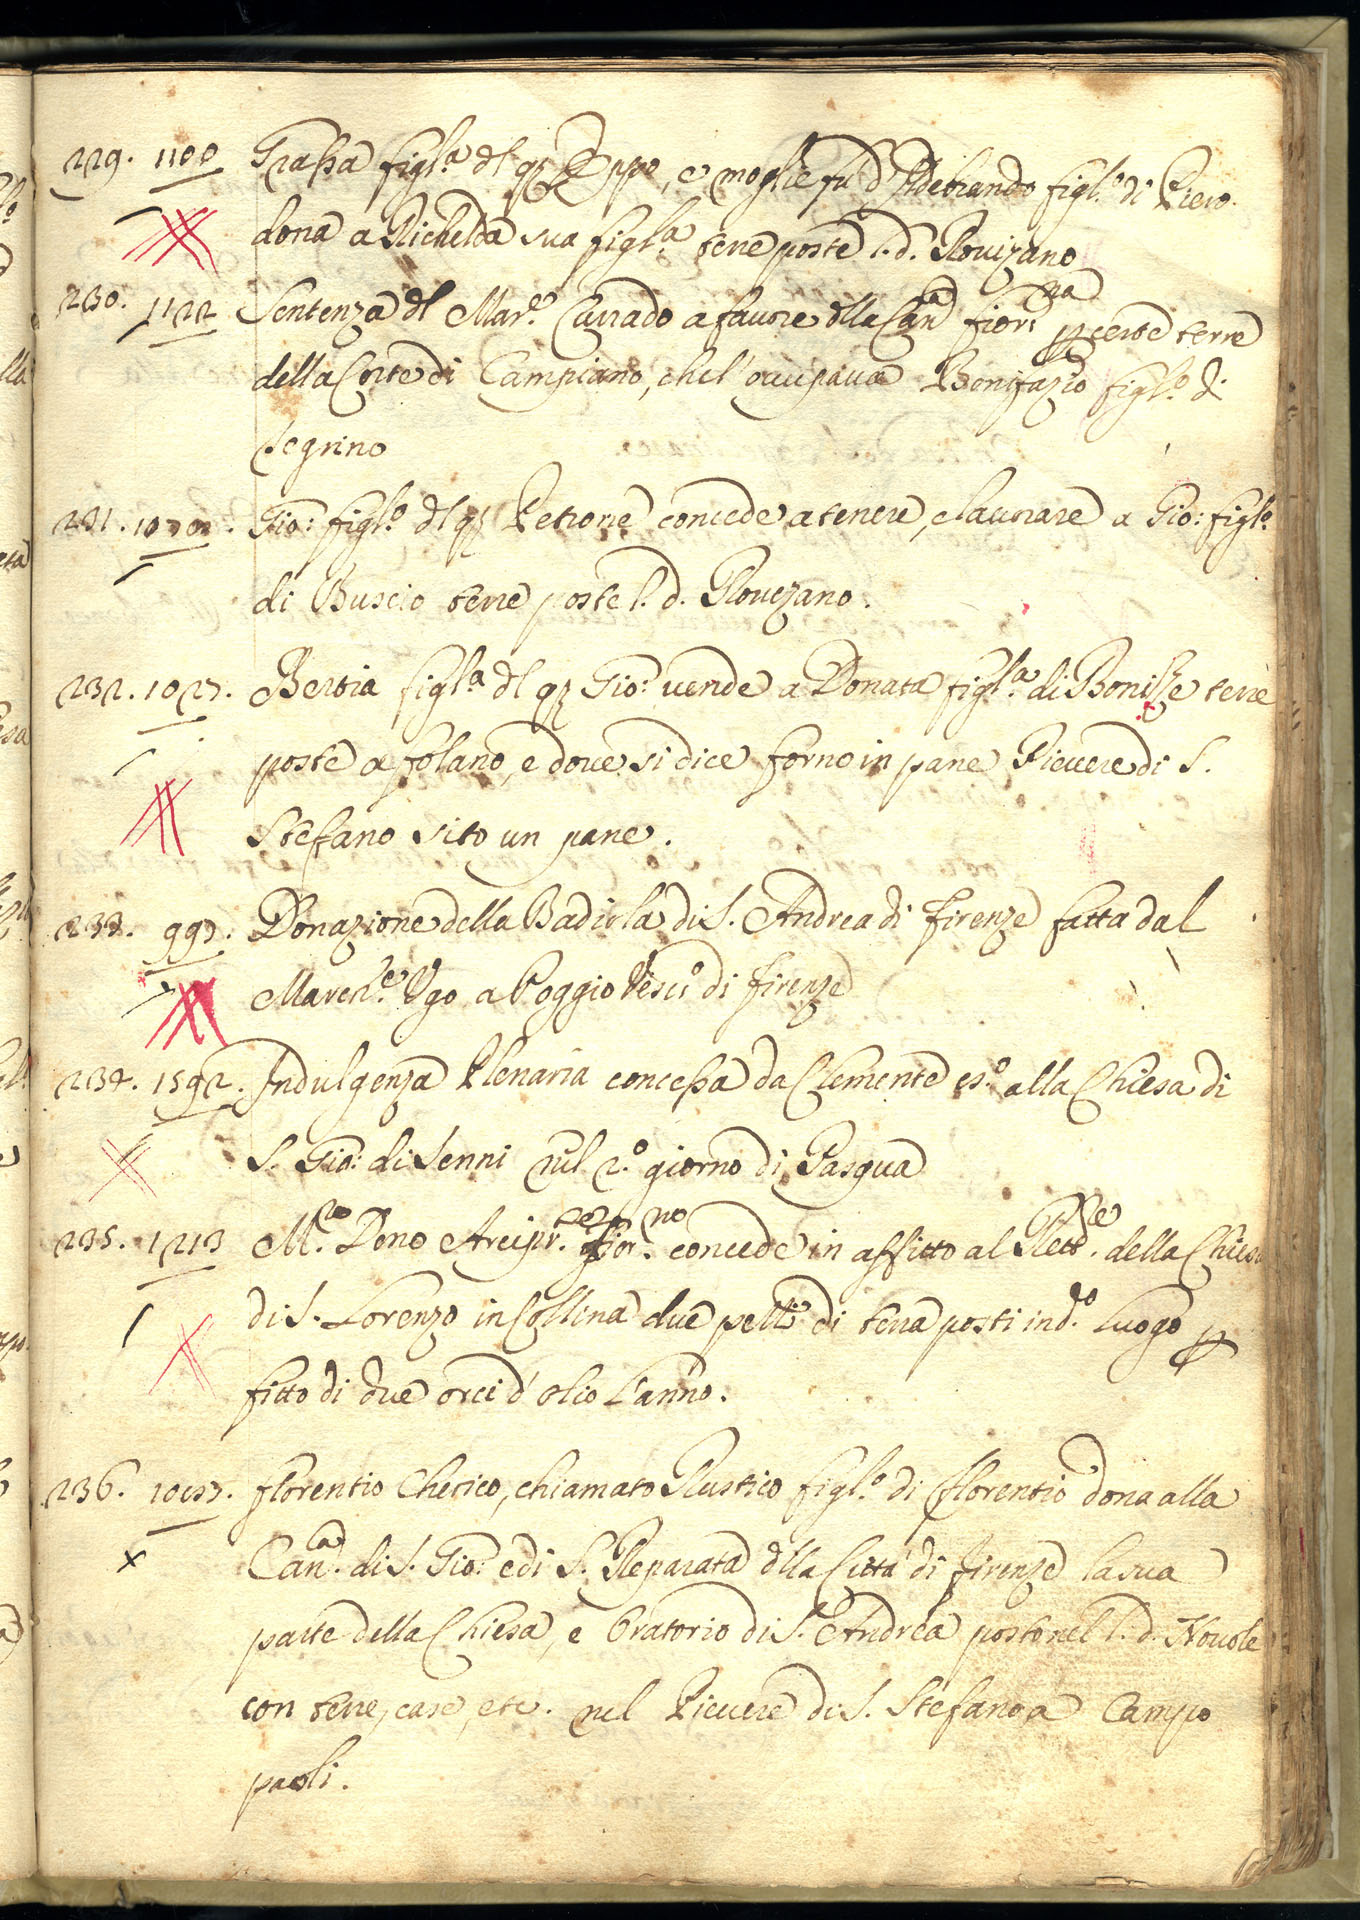 229. 1100 Grassa figl.ª dl q Eppo, e moglie fu d'Ildebrando figl.º di Piero
dona a Richelda sua figl.ª terre poste l. d. Rovizano
230. 1122 Sentenza dl Mar.e Currado a favore dlla Can.ª fior.na p certe terre
della Corte di Campiano, che l'occupava Bonifazio figl.º di
Segrino
231. Gio: figl.º dl q Petrone concede a tenere, e lavorare a Gio: figl.º
di Buscio terre poste l. d. Rovezano.
232. 1027. Bertia figl.ª dl q Gio: vende a Donata figl.ª di Bonizze terre
poste a folano, e dove si dice forno in pane Pievere di S.
Stefano sito un pane.
233. 997. Donazione della Badiola di S. Andrea di firenze fatta dal
March.e Ugo a Poggio Vesc.º di firenze
234. 1592. Indulgenza Plenaria concessa da Clemente 8.º alla Chiesa di
S. Gio: di Senni nel 2.º giorno di Pasqua
235. 1213 M.ro Dono Arcipr.e fior.no concede in affitto al Rett.e della Chiesa
di S. Lorenzo in Collina due pezzi di terra posti in d.º Luogo p
fitto di due orci d'olio l'anno.
236. florentio Cherico, chiamato Rustico figl.º di florentio dona alla
Can.ª di S. Gio: e di S. Reparata dlla Città di firenze la sua
parte della Chiesa, e Oratorio di S. Andrea posto nel l. d. Novole
con terre, case, etc. nel Pievere di S. Stefano a Campo
paoli.